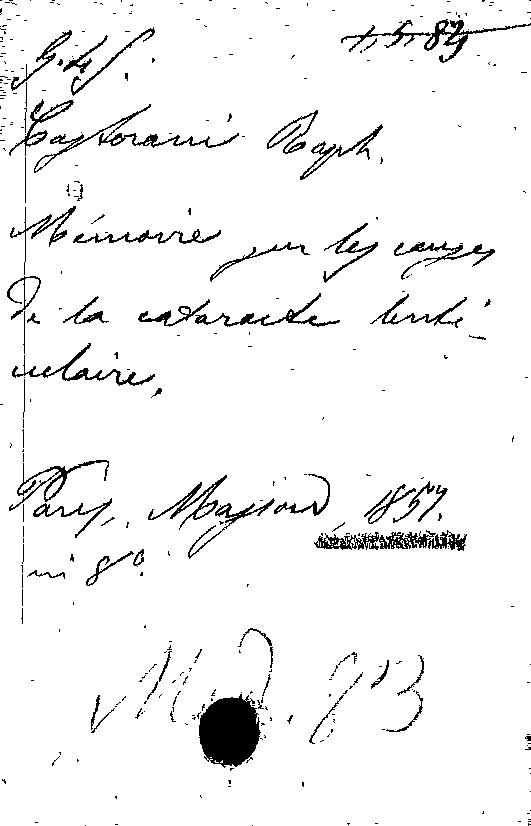 G. 4 S. 1, 5, 83
Castorani Raph.
Mémoire sur les causes
de la cataracte lenti-
culaire.
Paris, Masson, 1857.
in 8°.
Med. 813